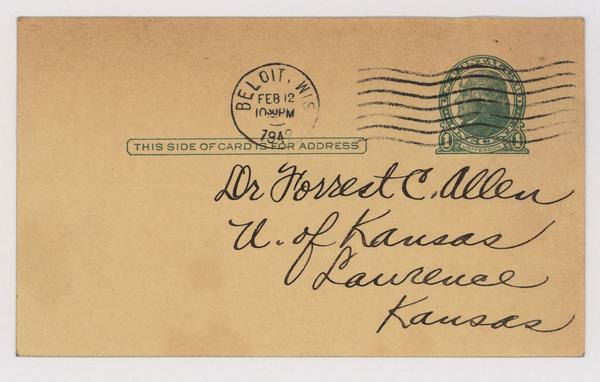 BELOIT, WIS
FEB 12
10 PM
194
THIS SIDE OF CARD IS FOR ADDRESS
1 JEFFERSON 1
Dr Forrest C. Allen
U. of Kansas
Lawrence
Kansas